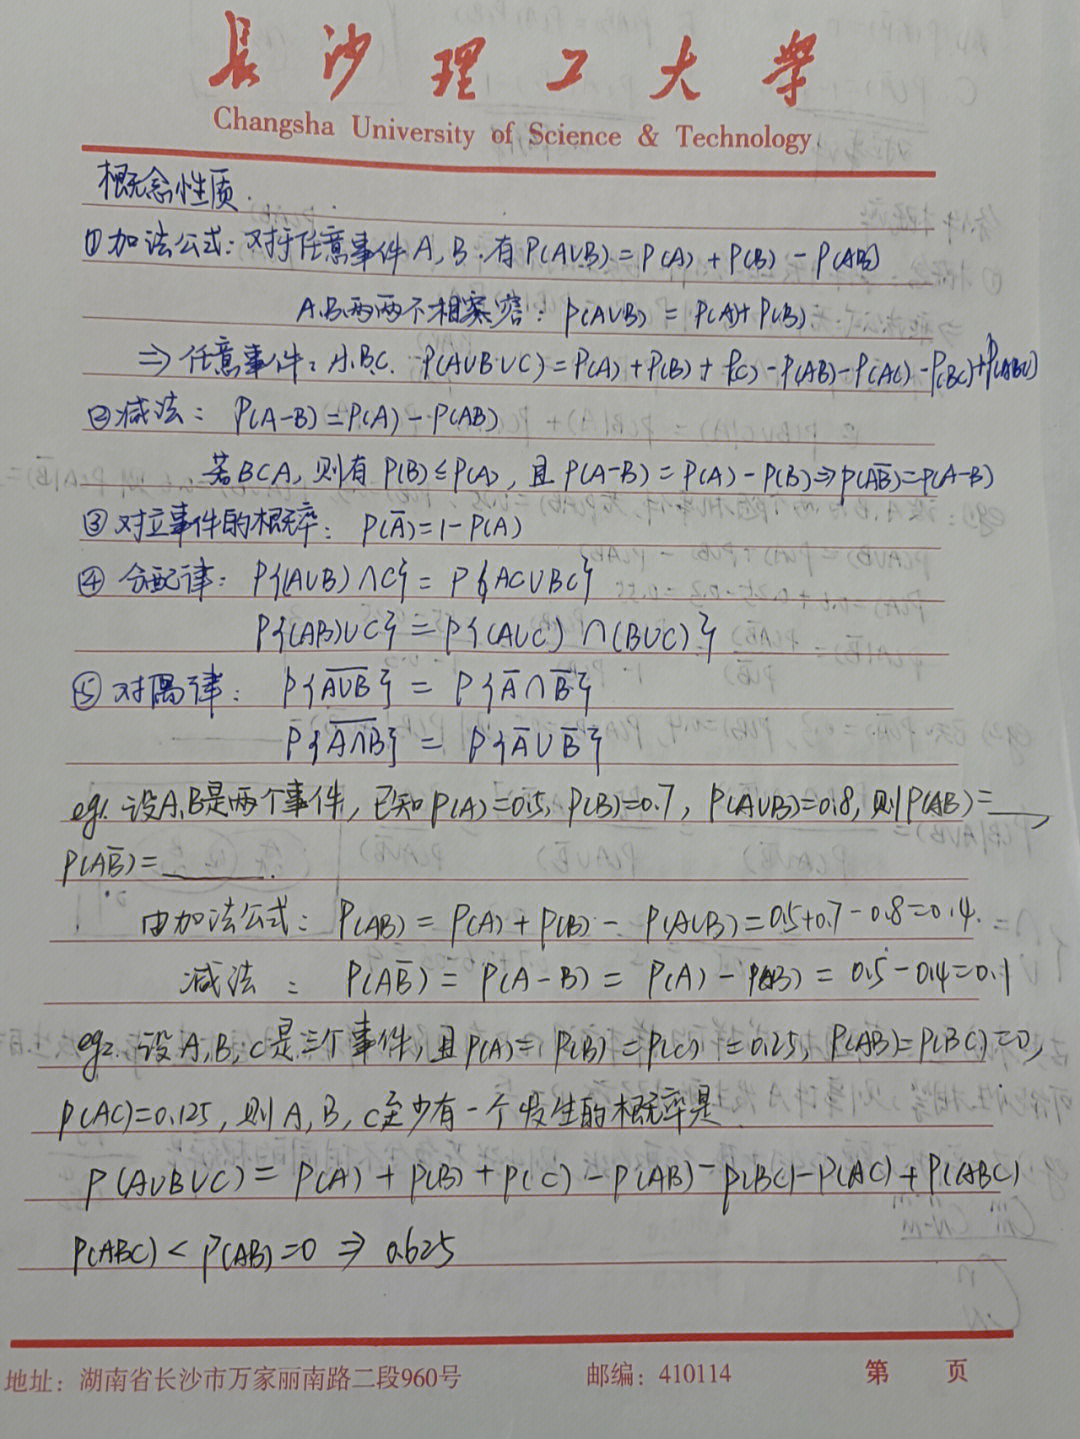 长沙理工大学
Changsha University of Science & Technology
概念性质.
①加法公式: 对于任意事件A,B.有P(A∪B)=P(A)+P(B)-P(AB)
A.B.两两不相容: P(A∪B)=P(A)+P(B)
⇒任意事件: A.B.C. P(A∪B∪C)=P(A)+P(B)+P(C)-P(AB)-P(AC)-P(BC)+P(ABC)
②减法: P(A-B)=P(A)-P(AB)
若B⊂A, 则有P(B)≤P(A), 且P(A-B)=P(A)-P(B)⇒P(AB̅)=P(A-B)
③对立事件的概率: P(A̅)=1-P(A)
④分配律: P{(A∪B)∩C}=P{AC∪BC}
P{(AB)∪C}=P{(A∪C)∩(B∪C)}
⑤对偶律: P{A̅∪̅B̅}=P{A̅∩B̅}
P{A̅∩̅B̅}=P{A̅∪B̅}
eg1. 设A.B是两个事件, 已知P(A)=0.5, P(B)=0.7, P(A∪B)=0.8, 则P(AB)=___,
P(AB̅)=____.
由加法公式: P(AB)=P(A)+P(B)-P(A∪B)=0.5+0.7-0.8=0.4.
减法: P(AB̅)=P(A-B)=P(A)-P(AB)=0.5-0.4=0.1
eg2. 设A,B,C是三个事件, 且P(A)=P(B)=P(C)=0.25, P(AB)=P(BC)=0,
P(AC)=0.125, 则A,B,C至少有一个发生的概率是
P(A∪B∪C)=P(A)+P(B)+P(C)-P(AB)-P(BC)-P(AC)+P(ABC)
P(ABC)<P(AB)=0⇒0.625
地址: 湖南省长沙市万家丽南路二段960号 邮编: 410114 第 页